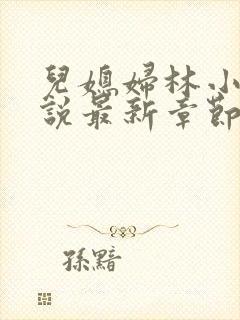 兒媳婦林小
說最新章節
孫黯